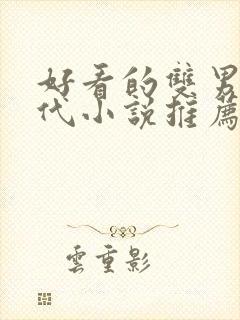 好看的雙男
代小說推薦
雲重影